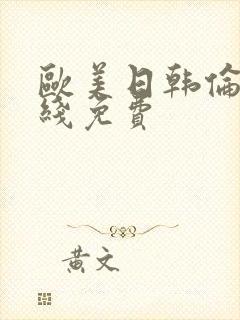 歐美日韩倫
綫免費
黃文